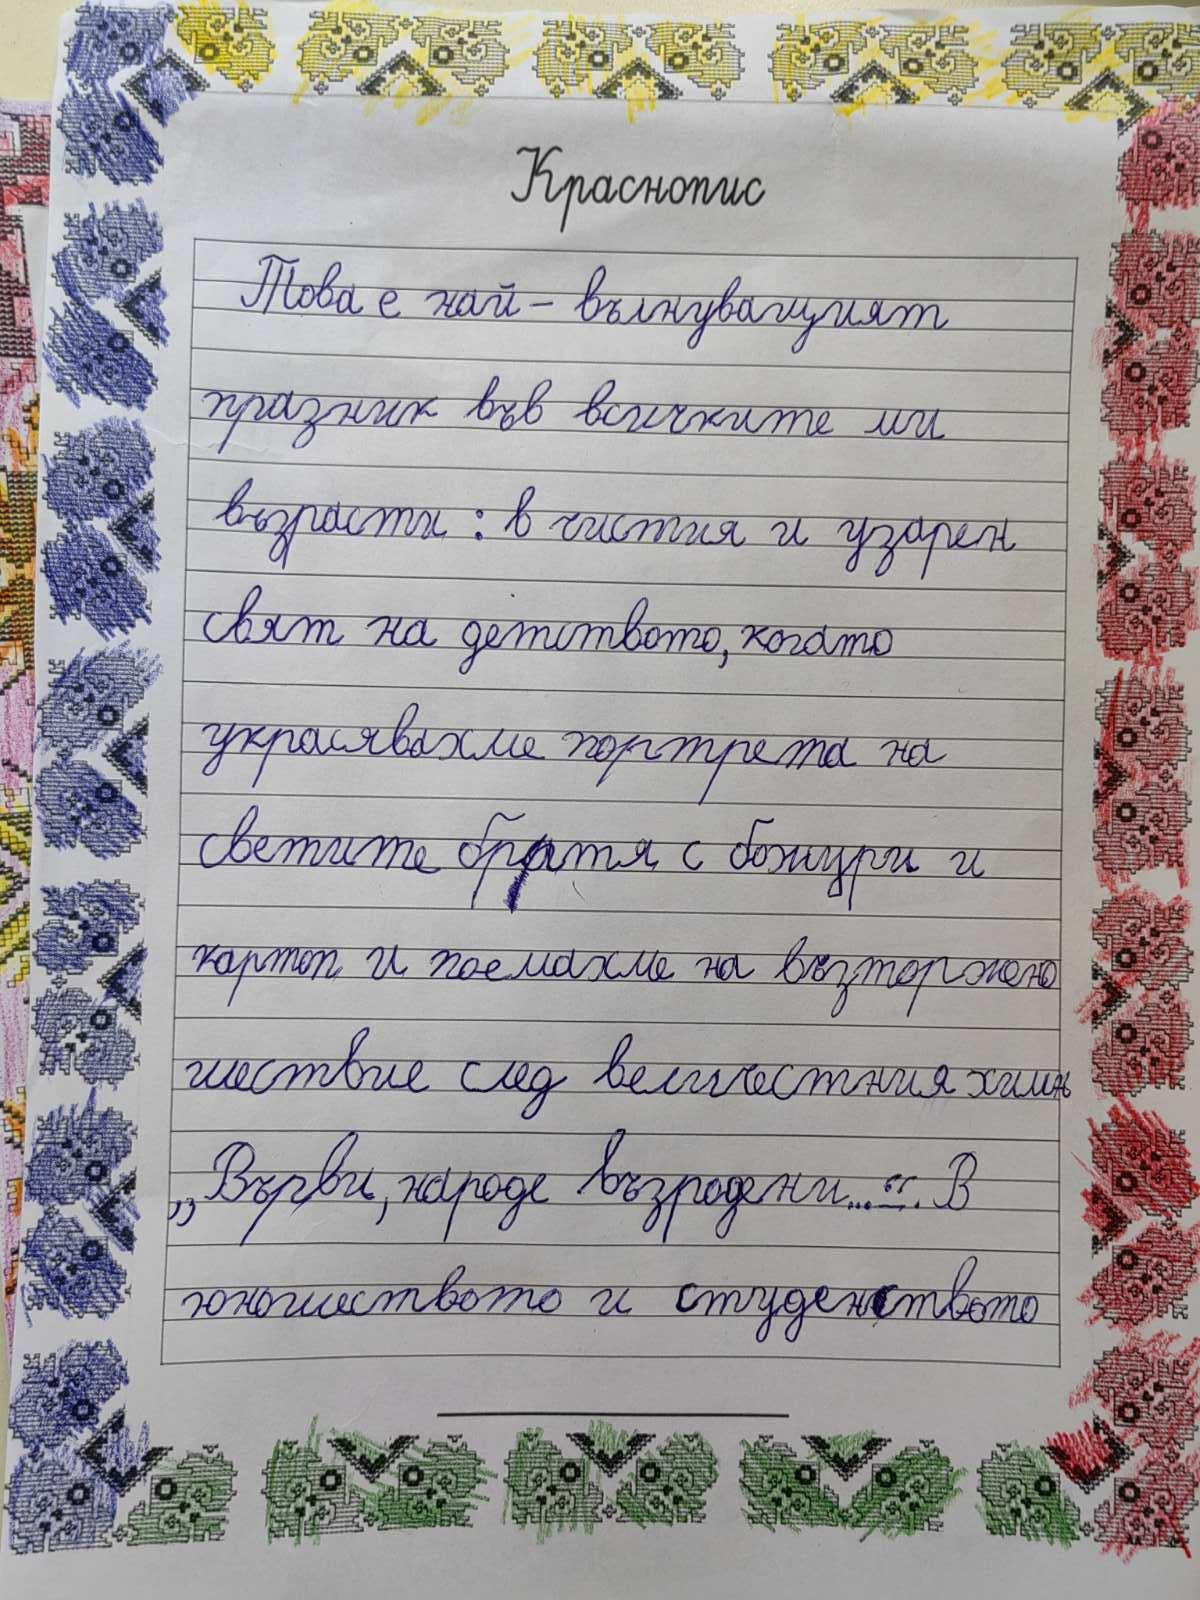 Краснопис
Това е най-вълнуващият
празник във всичките ми
възрасти: в чистия и узарен
свят на детството, когато
украсявахме портрета на
светите братя с божури и
картоп и поемахме на възторжено
шествие след величестния химн
„Върви, народе възродени...“. В
юношеството и студенството